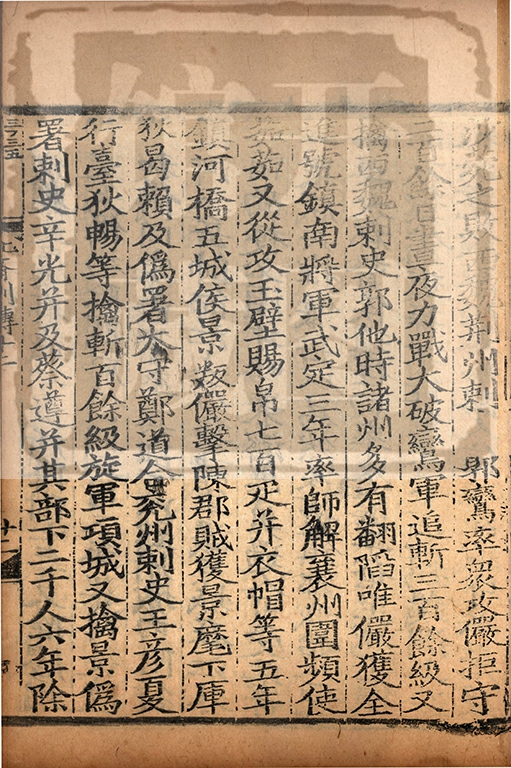 沙苑之敗西魏荆州刺 郭鸞率衆攻儼拒守
二百餘日晝夜力戰大破鸞軍追斬三百餘級又
擒西魏刺史郭他時諸州多有翻䧟唯儼獲全
進號鎮南將軍武定三年率師解襄州圍頻使
茹茹又從攻玉壁賜帛七百疋并衣帽等五年
鎮河橋五城侯景叛儼擊陳郡賊獲景麾下厙
狄曷賴及偽署太守鄭道合兖州刺史王彦夏
行臺狄暢等擒斬百餘級旋軍項城又擒景偽
署刺史辛光并及蔡遵并其部下二千人六年除